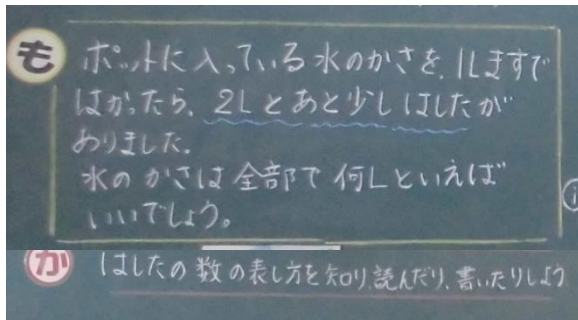 も ポットに入っている水のかさを、1Lますで
はかったら、2Lとあと少しはしたが
ありました。
水のかさは全部で何Lといえば
いいでしょう。
か はしたの数の表し方を知り、読んだり、書いたりしよう